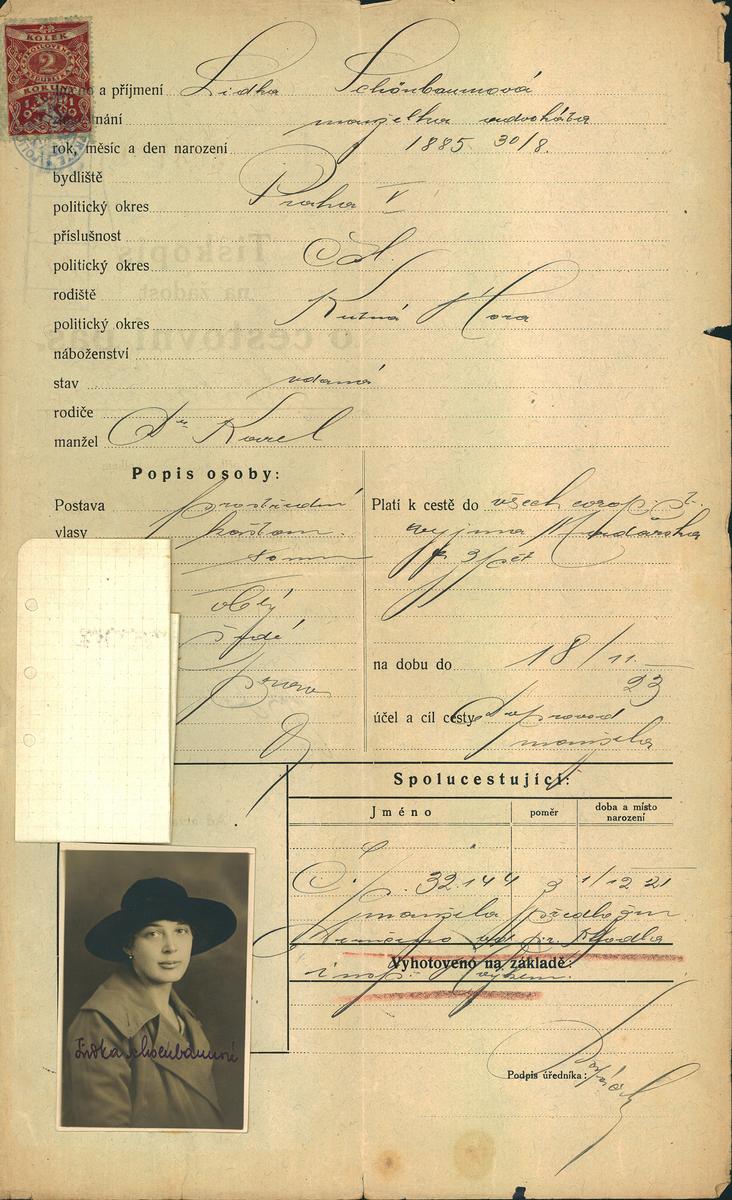 KOLEK
2
KORUNY
1919
a příjmení Lidka Schönbaumová
nání manželka advokáta
rok, měsíc a den narození 1885 30/8.
bydliště
politický okres Praha V
příslušnost
politický okres Čsl.
rodiště
politický okres Kutná Hora
náboženství
stav vdaná
rodiče
manžel Dr Karel
Popis osoby:
Postava prostřední
vlasy kaštan.
tmav
oblý
šedé
Platí k cestě do všech evrop. st.
vyjma Maďarska
a zpět
na dobu do 18/11.
23
účel a cíl cesty Doprovod
manžela
Spolucestující:
Jméno
poměr
doba a místo narození
Č. p. 32.144 z 1/12 21
manžela předložen
Vyhotoveno na základě:
Podpis úředníka:
Lidka Schoenbaumová
Tiskopis
na žádost
o cestovní pas.